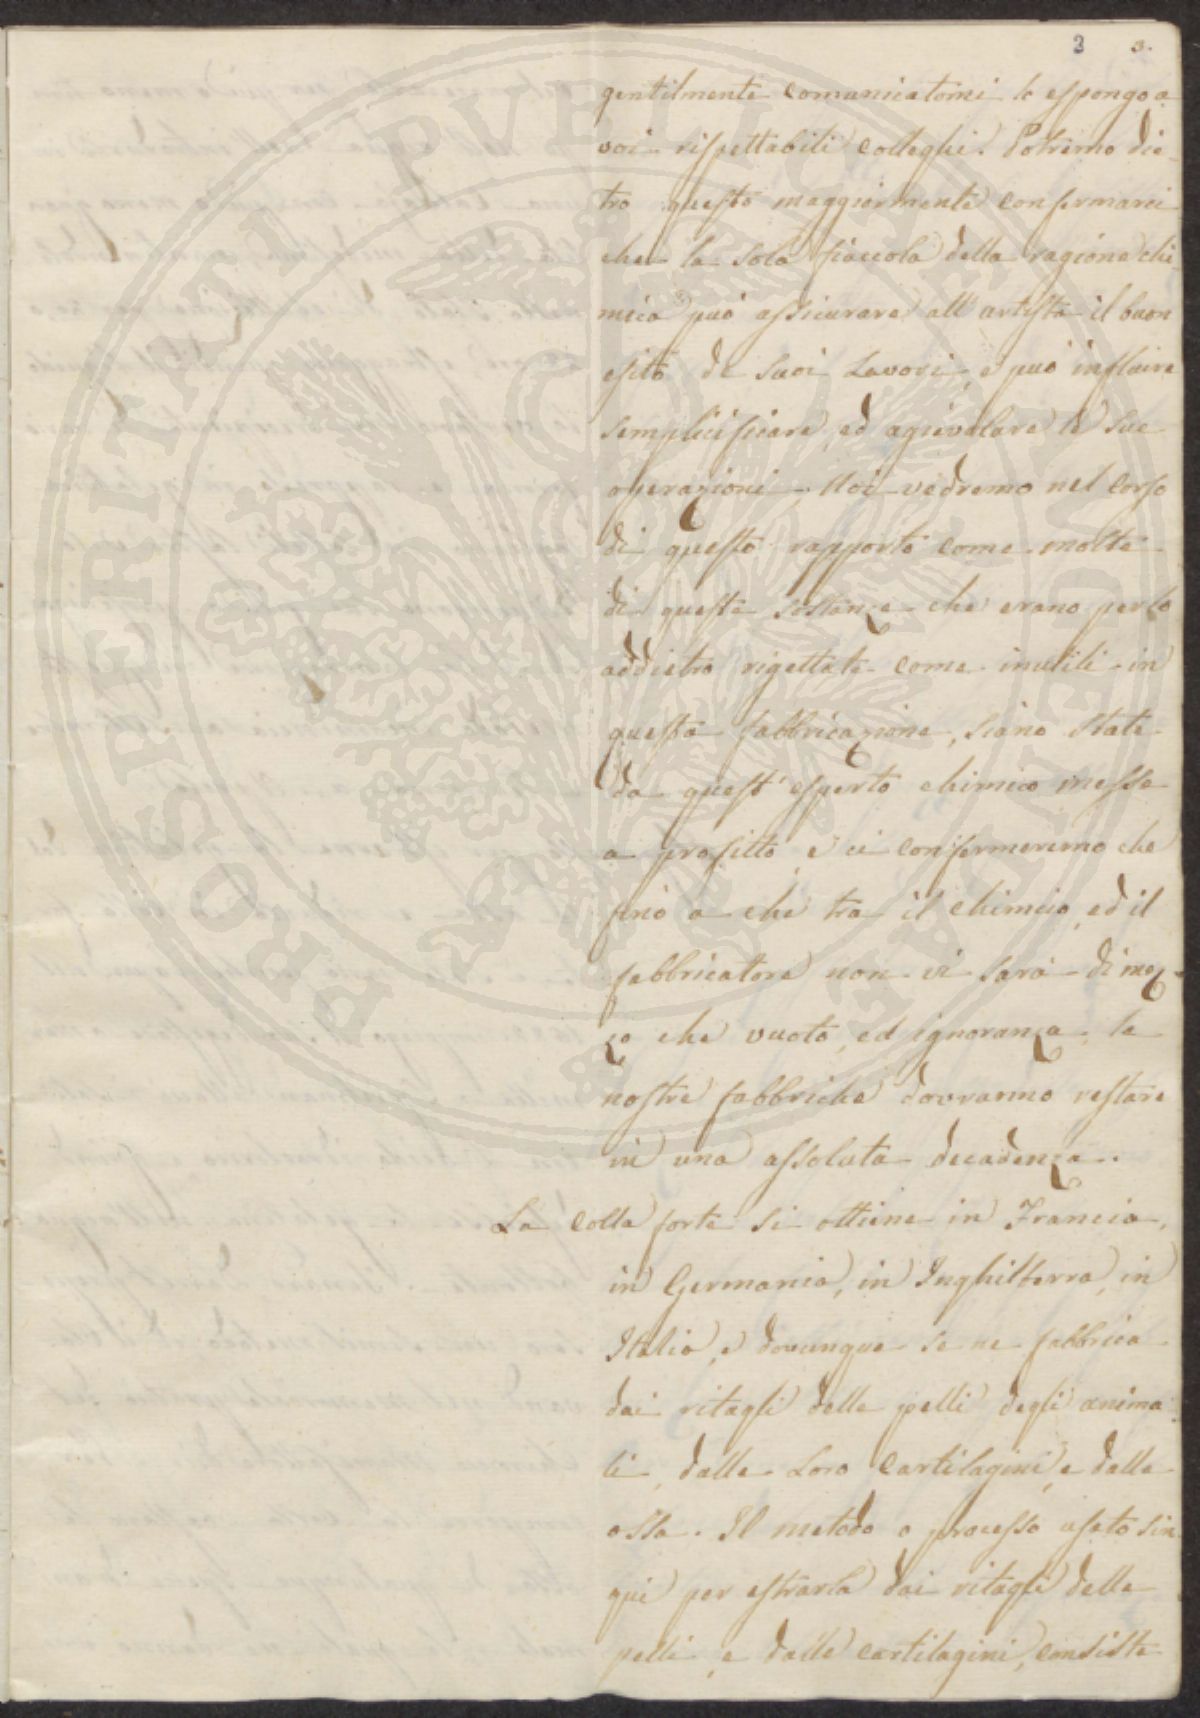 2 3.
gentilmente comunicatomi lo espongo a
voi rispettabili colleghi. Potremo die-
tro questo maggiormente confermarci
che la sola fiaccola della ragione chi-
mica può assicurare all'artista il buon
esito de suoi Lavori, e può influire
semplicificare, ed agievolare le sue
operazioni. Noi vedremo nel corso
di questo rapporto come molte
di queste sostanze che erano per lo
addietro rigettate come inutili in
questa fabbricazione, siano state
da quest'esperto chimico messe
a profitto, e ci confermeremo che
fino a che tra il chimico, ed il
fabbricatore non vi sarà di mez-
zo che vuoto, ed ignoranza, le
nostre fabbriche dovranno restare
in una assoluta decadenza.
La colla forte si ottiene in Francia,
in Germania, in Inghilterra, in
Italia, e dovunque se ne fabbrica
dai ritagli delle pelli degli anima-
li, dalle Loro Cartilagini, e dalle
ossa. Il metodo o processo usato sin
qui per estrarla dai ritagli delle
pelli, e dalle cartilagini, consiste
PROSPERITATI PVBLICAE AVGENDAE